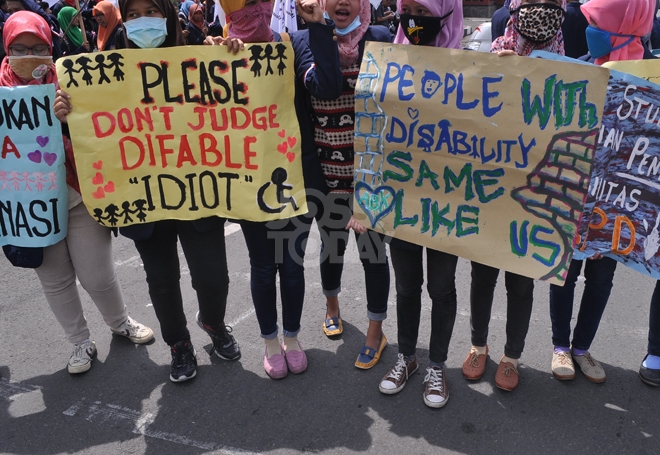 OKAN
A
NASI
PLEASE
DON'T JUDGE
DIFABLE
"IDIOT"
PEOPLE WITH
DISABILITY
SAME
LIKE US
SOLO
TODAY